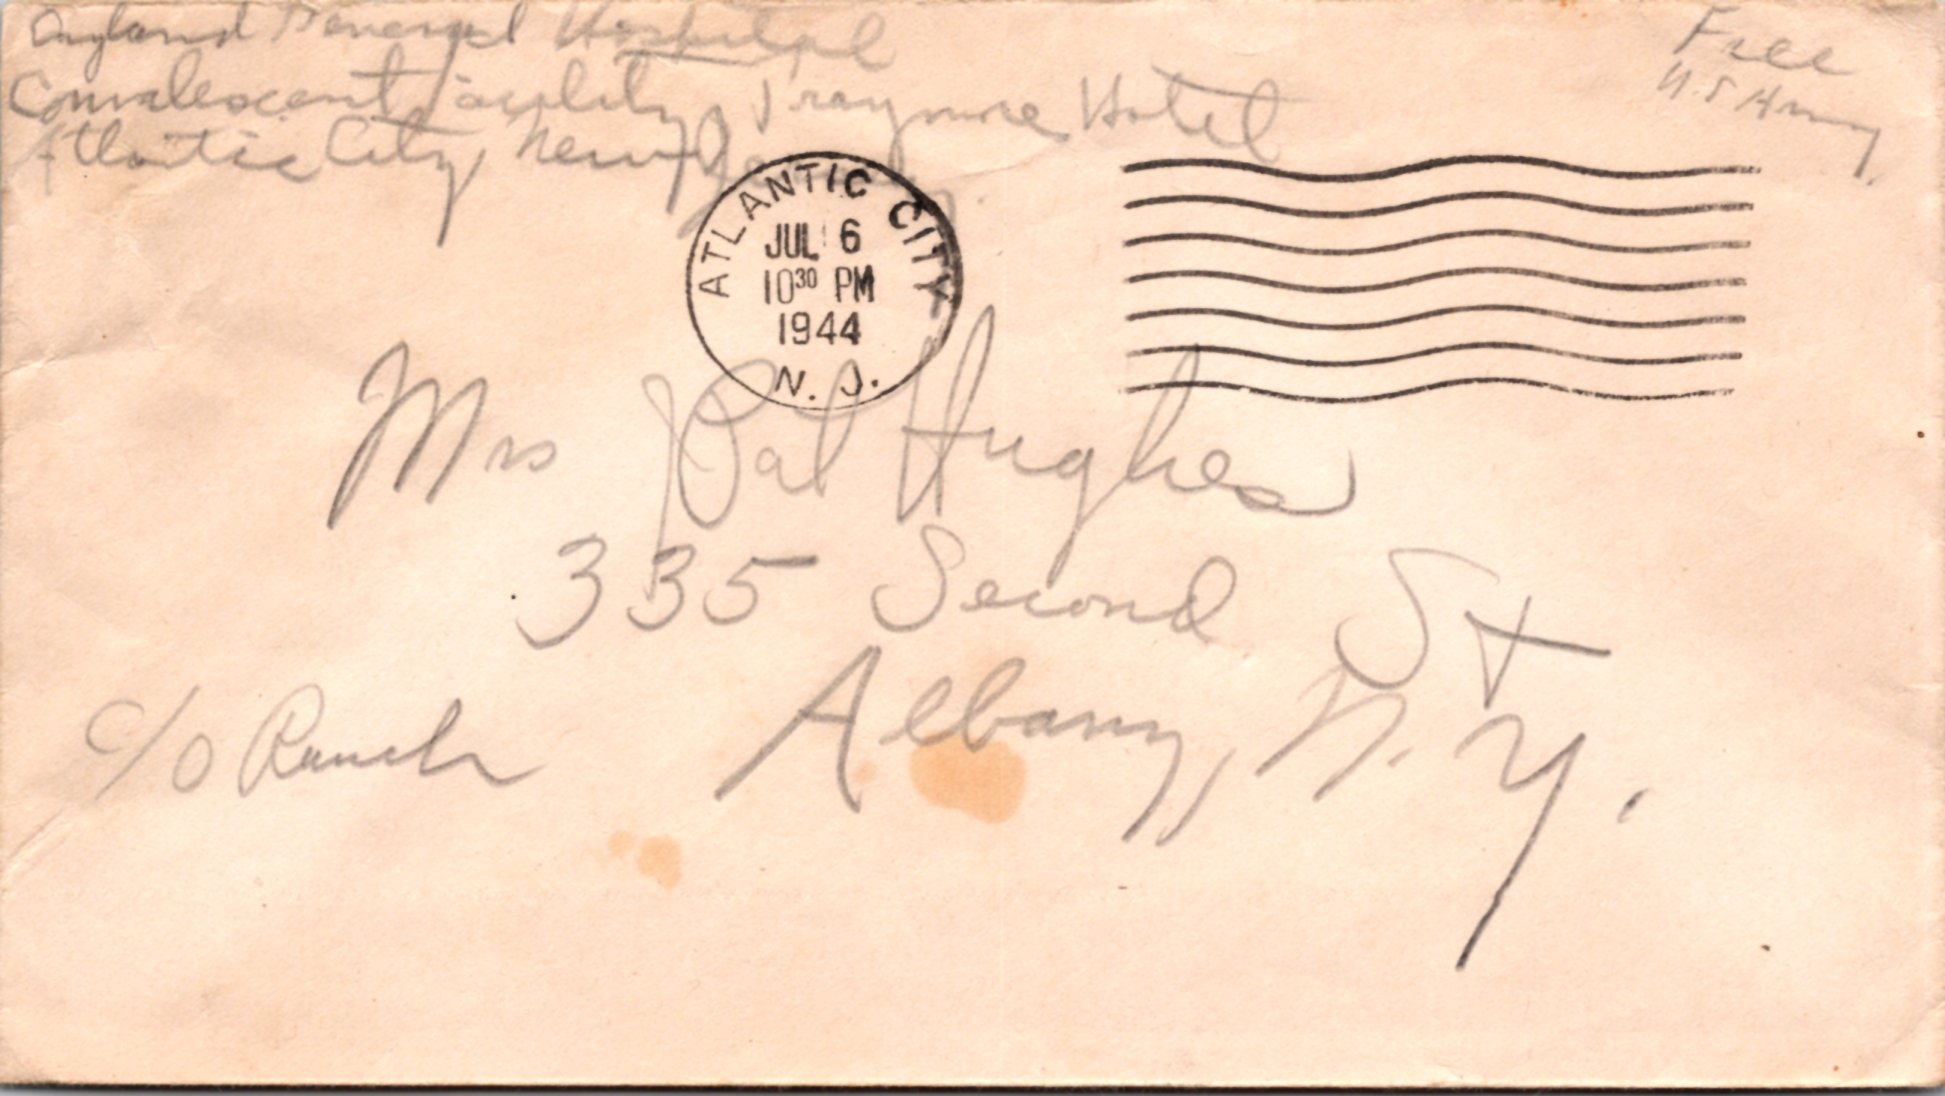 England General Hospital
Convalescent Facility, Traymore Hotel
Atlantic City, New Jersey.
Free
U.S Army.
ATLANTIC CITY
JUL 6
10³⁰ PM
1944
N. J.
Mrs Pat Hughes
335 Second St
Albany, N.Y.
c/o Ranch